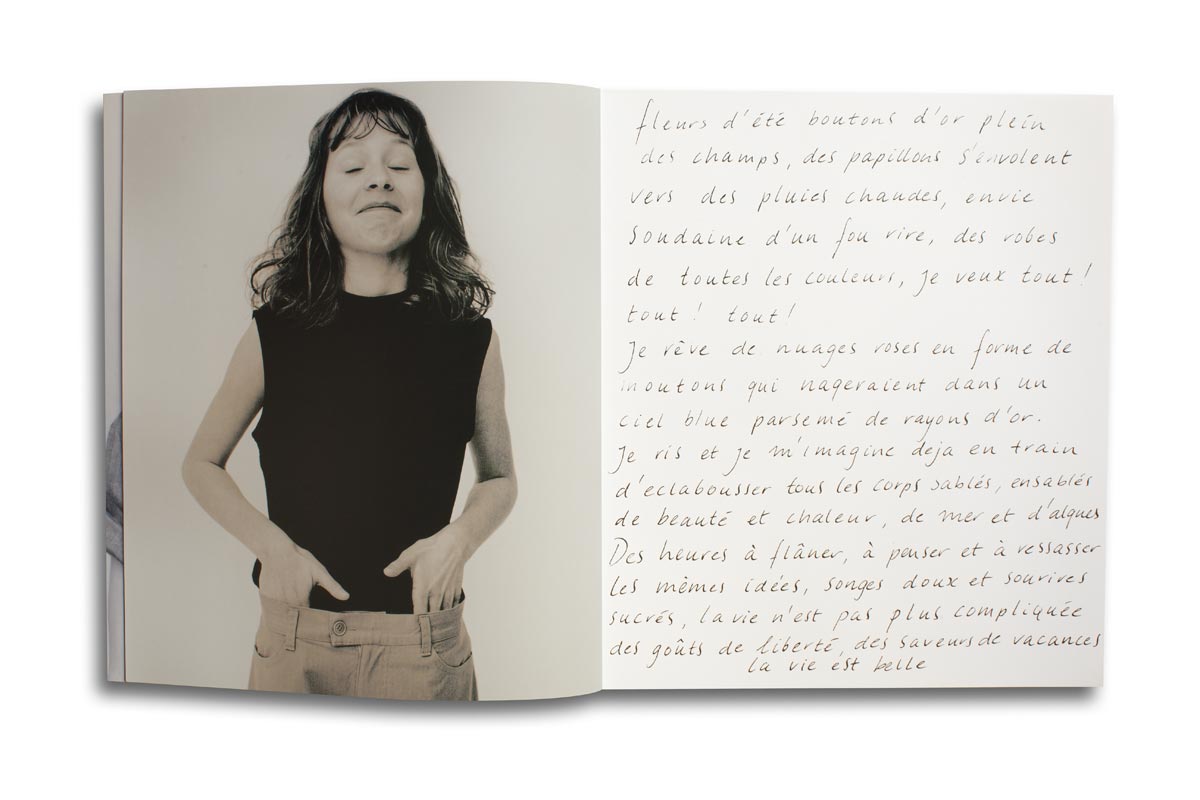 fleurs d'été boutons d'or plein
des champs, des papillons s'envolent
vers des pluies chaudes, envie
soudaine d'un fou rire, des robes
de toutes les couleurs, je veux tout!
tout! tout!
Je rêve de nuages roses en forme de
moutons qui nageraient dans un
ciel blue parsemé de rayons d'or.
Je ris et je m'imagine deja en train
d'eclabousser tous les corps sablés, ensablés
de beauté et chaleur, de mer et d'algues
Des heures à flâner, à penser et à ressasser
les mêmes idées, songes doux et sourires
sucrés, la vie n'est pas plus compliquée
des goûts de liberté, des saveurs de vacances
la vie est belle